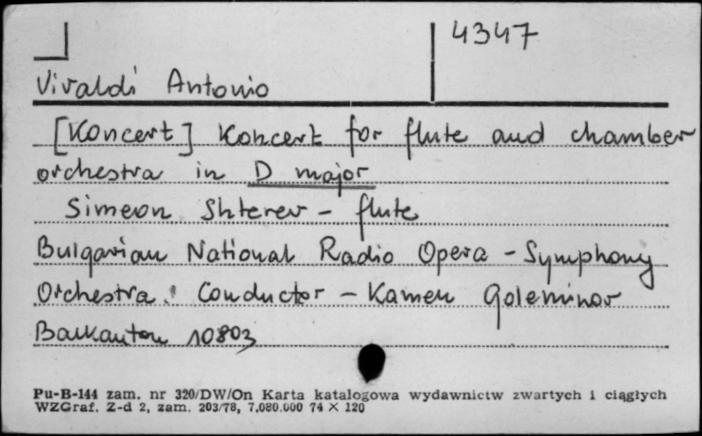 4347
Vivaldi Antonio
[Koncert] Koncert for flute and chamber
orchestra in D major
Simeon Shterev - flute
Bulgarian National Radio Opera - Symphony
Orchestra. Conductor - Kamen Goleminov
Balkanton 10803
Pu-B-144 zam. nr 320/DW/On Karta katalogowa wydawnictw zwartych i ciągłych
WZGraf. Z-d 2, zam. 203/78, 7.080.000 74 × 120